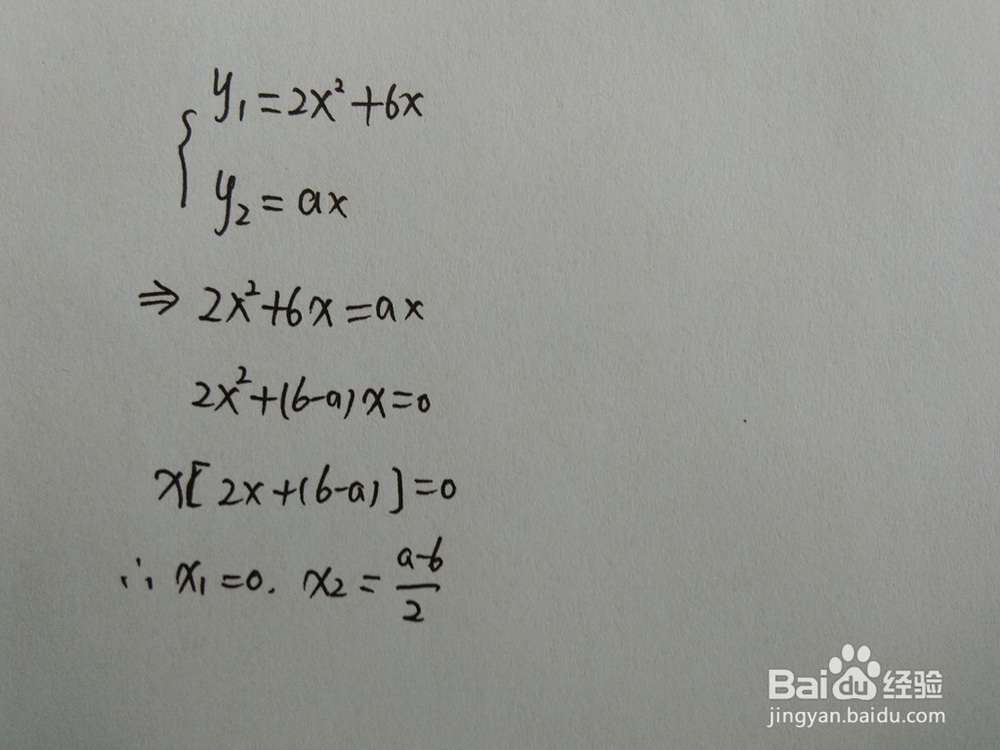 y₁=2x²+6x
y₂=ax
⇒ 2x²+6x=ax
2x²+(6-a)x=0
x[2x+(6-a)]=0
∴ x₁=0. x₂=\frac{a-6}{2}
Baidu 经验
jingyan.baidu.com